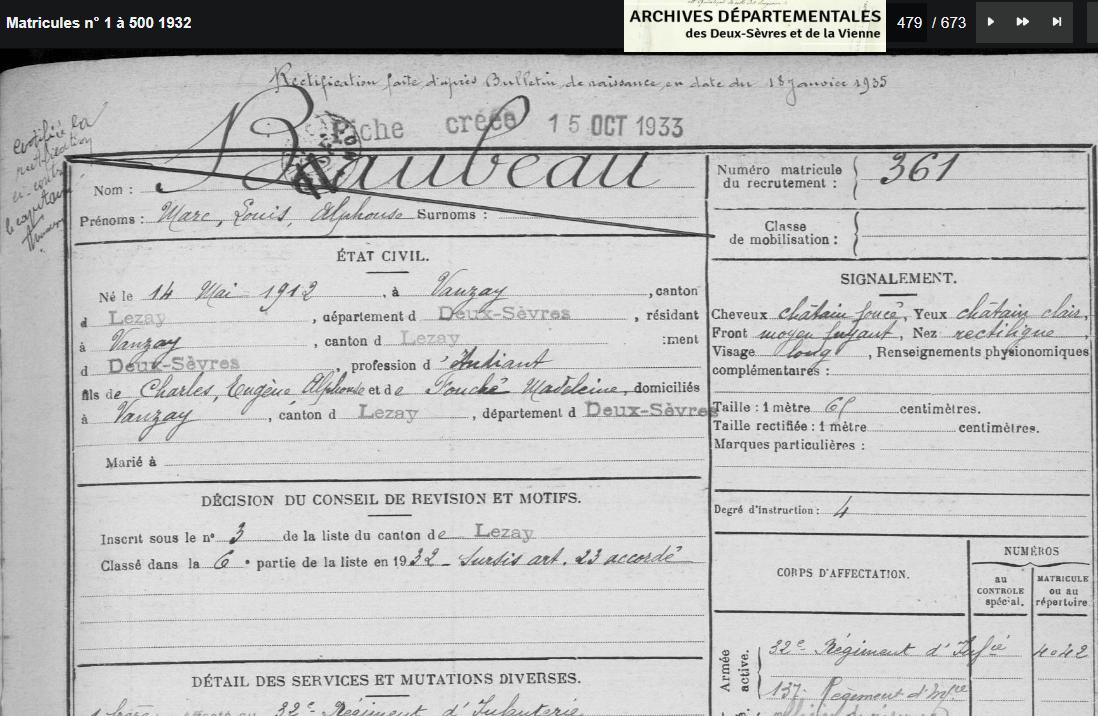 Matricules n° 1 à 500 1932
ARCHIVES DÉPARTEMENTALES
des Deux-Sèvres et de la Vienne
479 / 673
Rectification faite d'après Bulletin de naissance en date du 18 Janvier 1935
Fiche créée 15 OCT 1933
certifié la
rectification
le capitaine
Nom : Baubeau
Prénoms : Marc, Louis, Alphonse Surnoms :
Numéro matricule
du recrutement : 361
Classe
de mobilisation :
ÉTAT CIVIL.
Né le 14 Mai 1912, à Vanzay, canton
d Lezay, département d Deux-Sèvres, résidant
à Vanzay, canton d Lezay :ment
d Deux-Sèvres, profession d'étudiant
fils de Charles, Eugène, Alphonse et de Fouché Madeleine, domiciliés
à Vanzay, canton d Lezay, département d Deux-Sèvres
Marié à
SIGNALEMENT.
Cheveux châtain foncé, Yeux châtain clair,
Front moyen fuyant, Nez rectiligne
Visage long, Renseignements physionomiques
complémentaires :
Taille : 1 mètre 65 centimètres.
Taille rectifiée : 1 mètre centimètres.
Marques particulières :
Degré d'instruction : 4
DÉCISION DU CONSEIL DE REVISION ET MOTIFS.
Inscrit sous le n° 3 de la liste du canton de Lezay
Classé dans la 6e partie de la liste en 1932 - Sursis art. 23 accordé
CORPS D'AFFECTATION.
NUMÉROS
au
CONTROLE
spécial.
MATRICULE
ou au
répertoire
Armée
active.
32e Régiment d'Infie 4042
137e Régiment d'Infie
DÉTAIL DES SERVICES ET MUTATIONS DIVERSES.
32e Régiment d'Infanterie